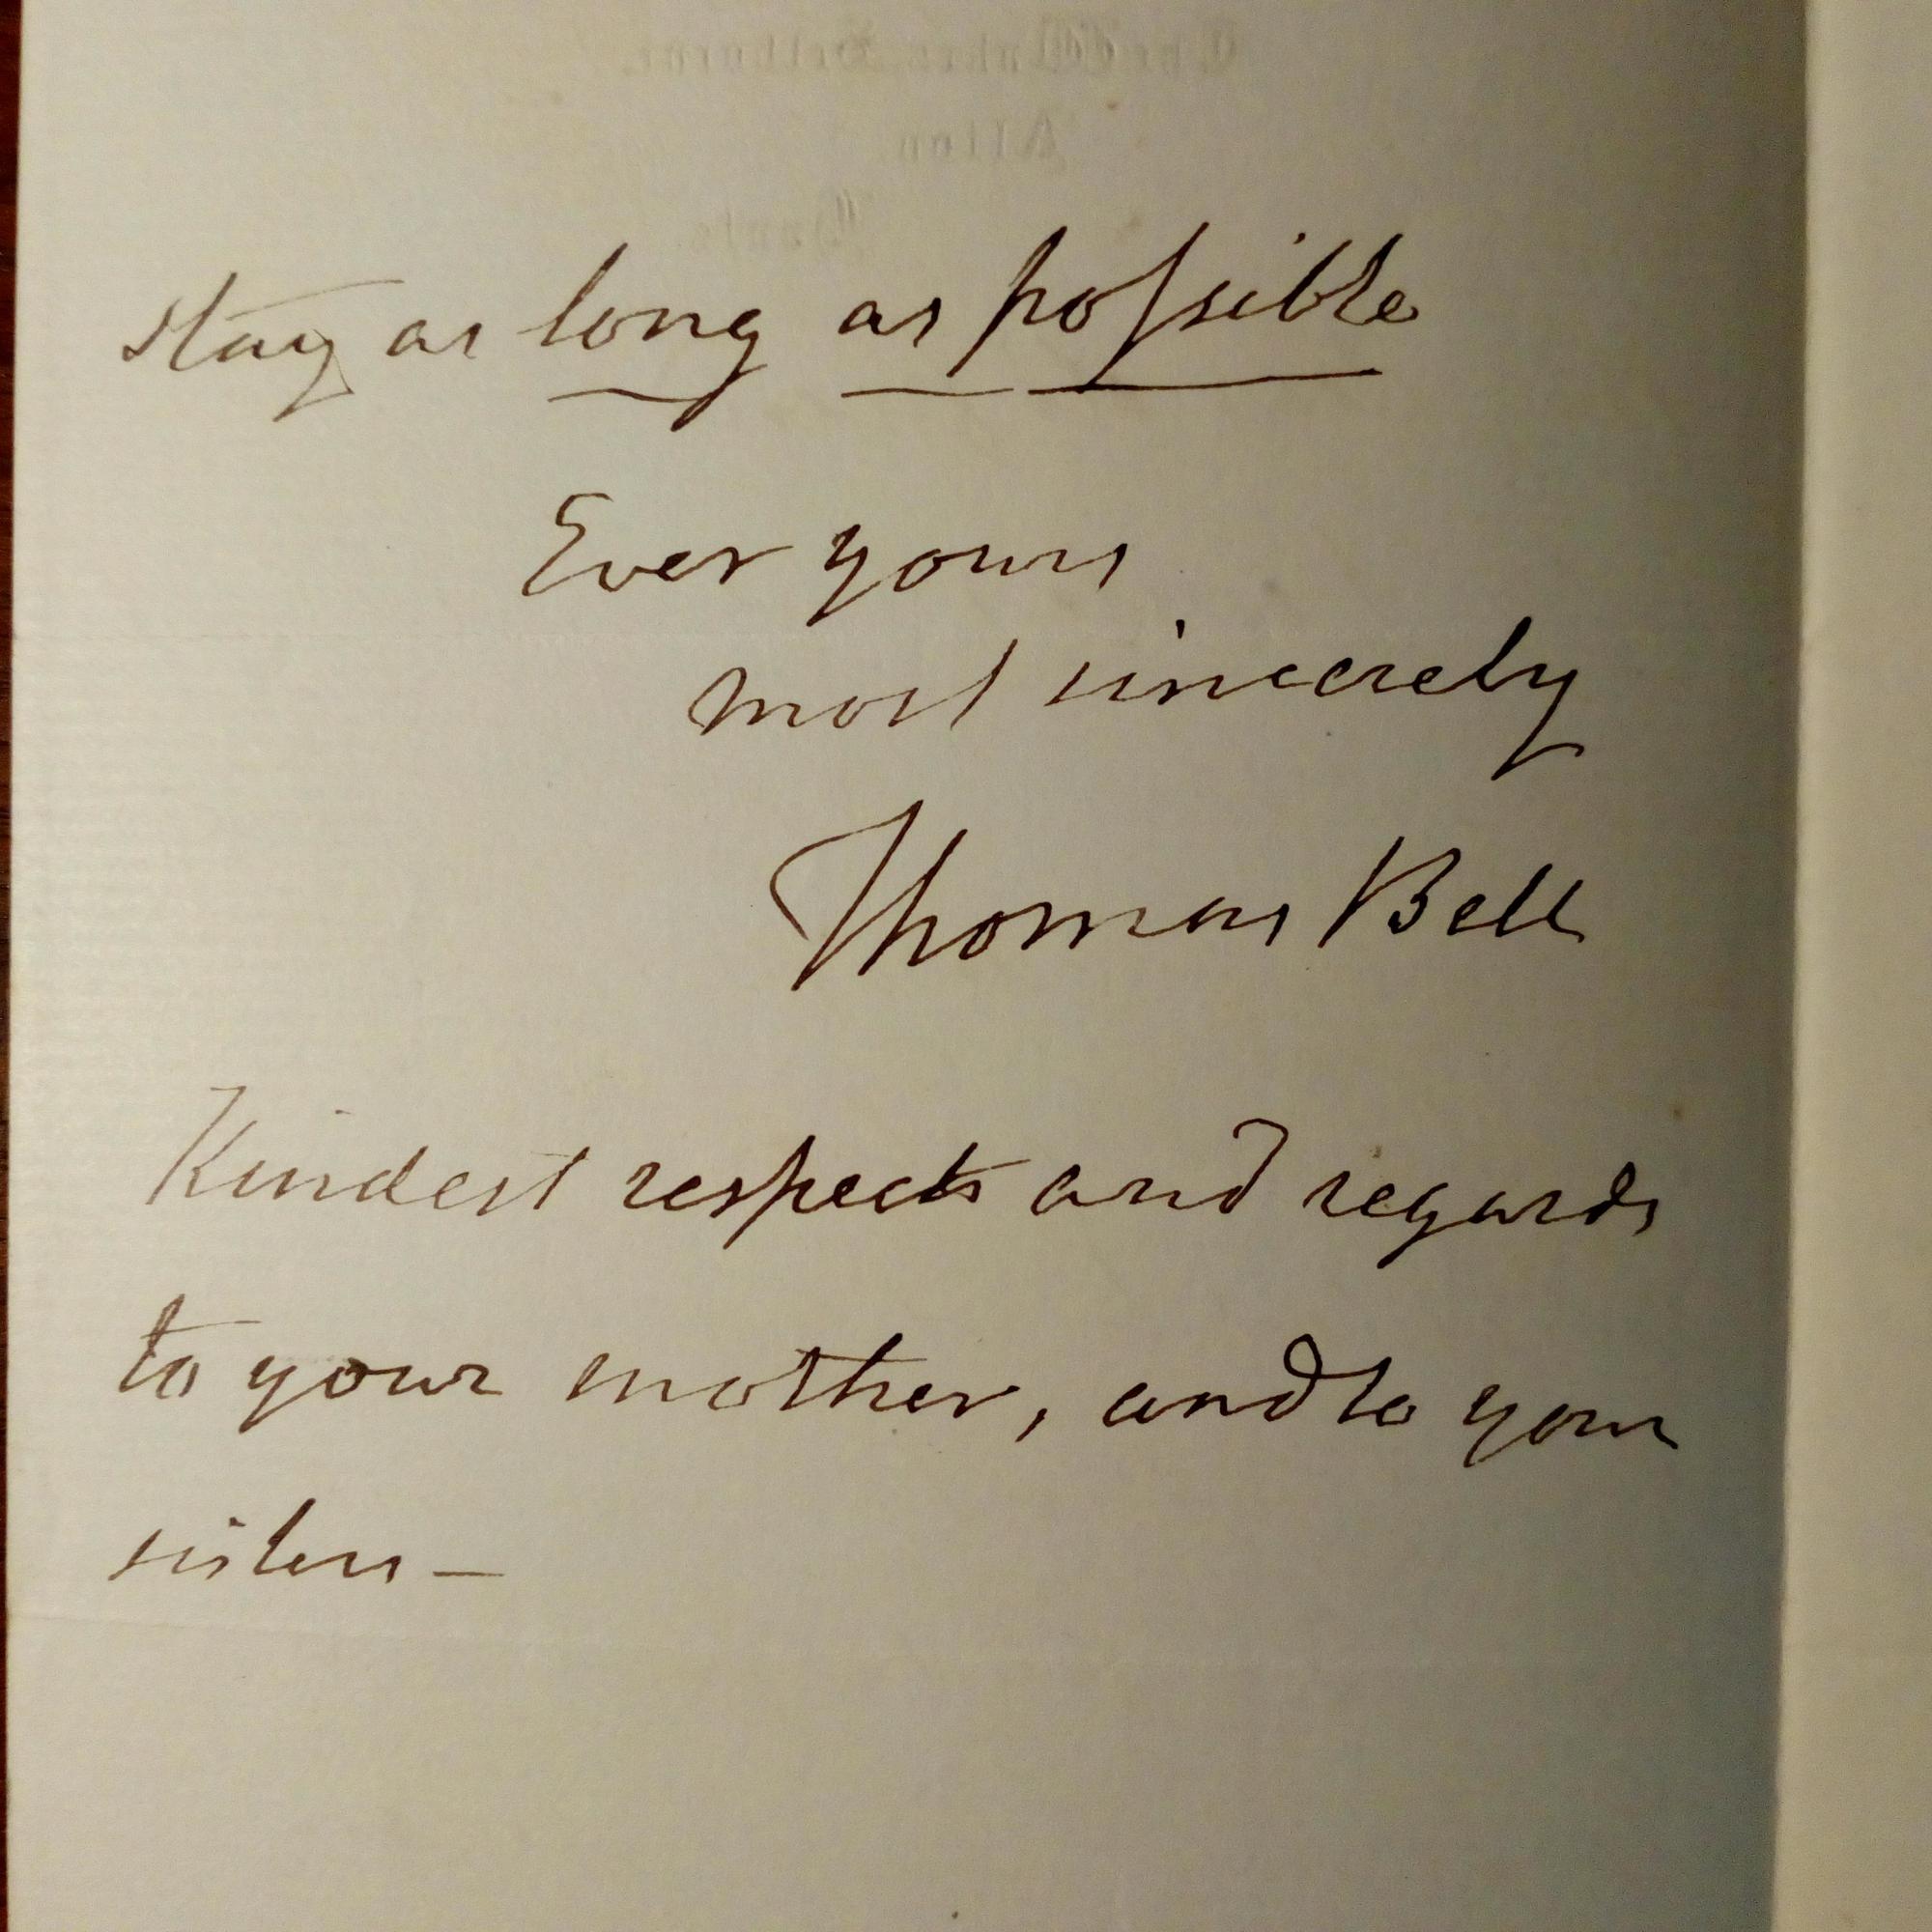 The Wakes, Selborne.
Alton
Hants.
stay as long as possible
Ever yours
most sincerely
Thomas Bell
Kindest respects and regards
to your mother, and to your
sisters —